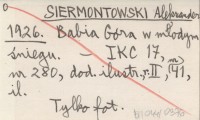 SIERMONTOWSKI Aleksander
1926. Babia Góra w młodym
śniegu. – IKC 17,
nr 280, dod. ilustr. r. II, 141,
il.
Tylko fot.